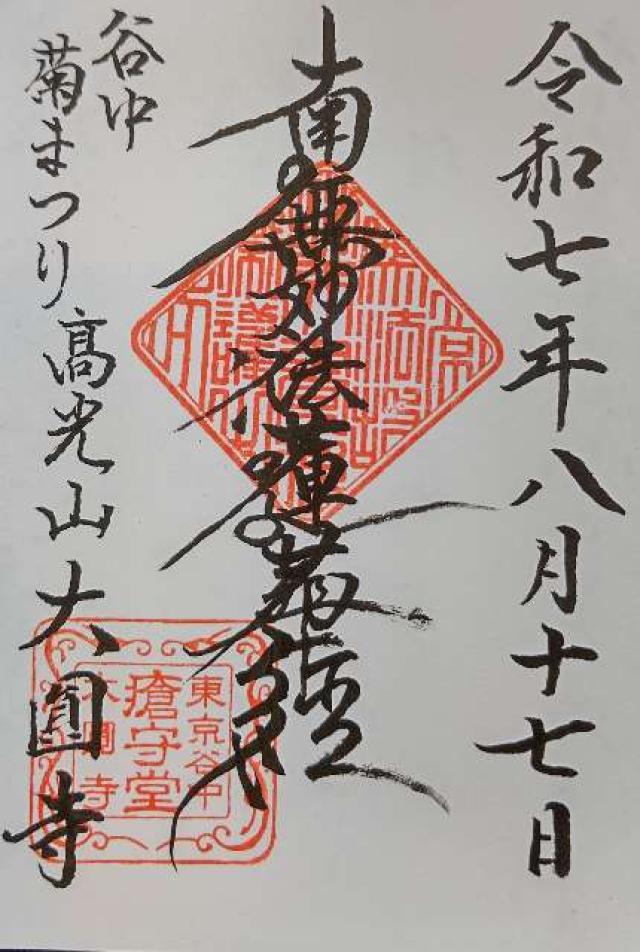 令和七年八月十七日
南無妙法蓮華経
谷中
菊まつり 高光山 大圓寺
東京谷中
瘡守堂
大圓寺